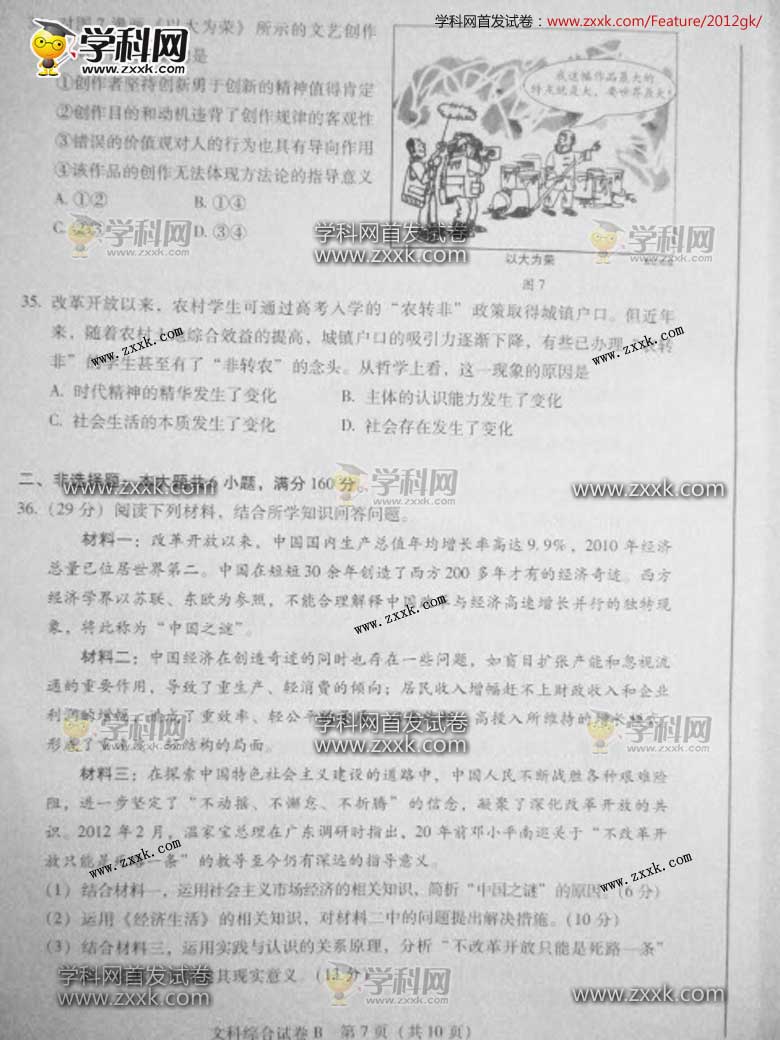 学科网首发试卷：www.zxxk.com/Feature/2012gk/
学科网
www.zxxk.com
《以大为荣》所示的文艺创作
是
①创作者坚持创新勇于创新的精神值得肯定
②创作目的和动机违背了创作规律的客观性
③错误的价值观对人的行为也具有导向作用
④该作品的创作无法体现方法论的指导意义
A. ①② B. ①④
C. ②③ D. ③④
我这幅作品最大的
特点就是大，要世界最大
以大为荣
图7
学科网
www.zxxk.com
学科网首发试卷
www.zxxk.com
学科网
zxxk.com
35. 改革开放以来，农村学生可通过高考入学的“农转非”政策取得城镇户口。但近年
来，随着农村土地综合效益的提高，城镇户口的吸引力逐渐下降，有些已办理“农转
非”的学生甚至有了“非转农”的念头。从哲学上看，这一现象的原因是
A. 时代精神的精华发生了变化 B. 主体的认识能力发生了变化
C. 社会生活的本质发生了变化 D. 社会存在发生了变化
www.zxxk.com
www.zxxk.com
二、非选择题：本大题共6小题，满分160分。
36.（29分）阅读下列材料，结合所学知识回答问题。
学科网首发试卷
www.zxxk.com
学科网
zxxk.com
学科网首发试卷
www.zxxk.com
材料一：改革开放以来，中国国内生产总值年均增长率高达9.9%，2010年经济
总量已位居世界第二。中国在短短30余年创造了西方200多年才有的经济奇迹。西方
经济学界以苏联、东欧为参照，不能合理解释中国改革与经济高速增长并行的独特现
象，将此称为“中国之谜”。
www.zxxk.com
材料二：中国经济在创造奇迹的同时也存在一些问题，如盲目扩张产能和忽视流
通的重要作用，导致了重生产、轻消费的倾向；居民收入增幅赶不上财政收入和企业
利润的增幅，造成了重效率、轻公平的 高投入所维持的增长
形成了 结构的局面。
学科网
www.zxxk.com
学科网首发试卷
www.zxxk.com
学科网
zxxk.com
材料三：在探索中国特色社会主义建设的道路中，中国人民不断战胜各种艰难险
阻，进一步坚定了“不动摇、不懈怠、不折腾”的信念，凝聚了深化改革开放的共
识。2012年2月，温家宝总理在广东调研时指出，20年前邓小平南巡关于“不改革开
放只能是死路一条”的教导至今仍有深远的指导意义。
www.zxxk.com
www.zxxk.com
（1）结合材料一，运用社会主义市场经济的相关知识，简析“中国之谜”的原因。（6分）
（2）运用《经济生活》的相关知识，对材料二中的问题提出解决措施。（10分）
（3）结合材料三，运用实践与认识的关系原理，分析“不改革开放只能是死路一条”
其现实意义。（13分）
学科网首发试卷
www.zxxk.com
学科网
zxxk.com
学科网首发试卷
www.zxxk.com
文科综合试卷B 第7页（共10页）